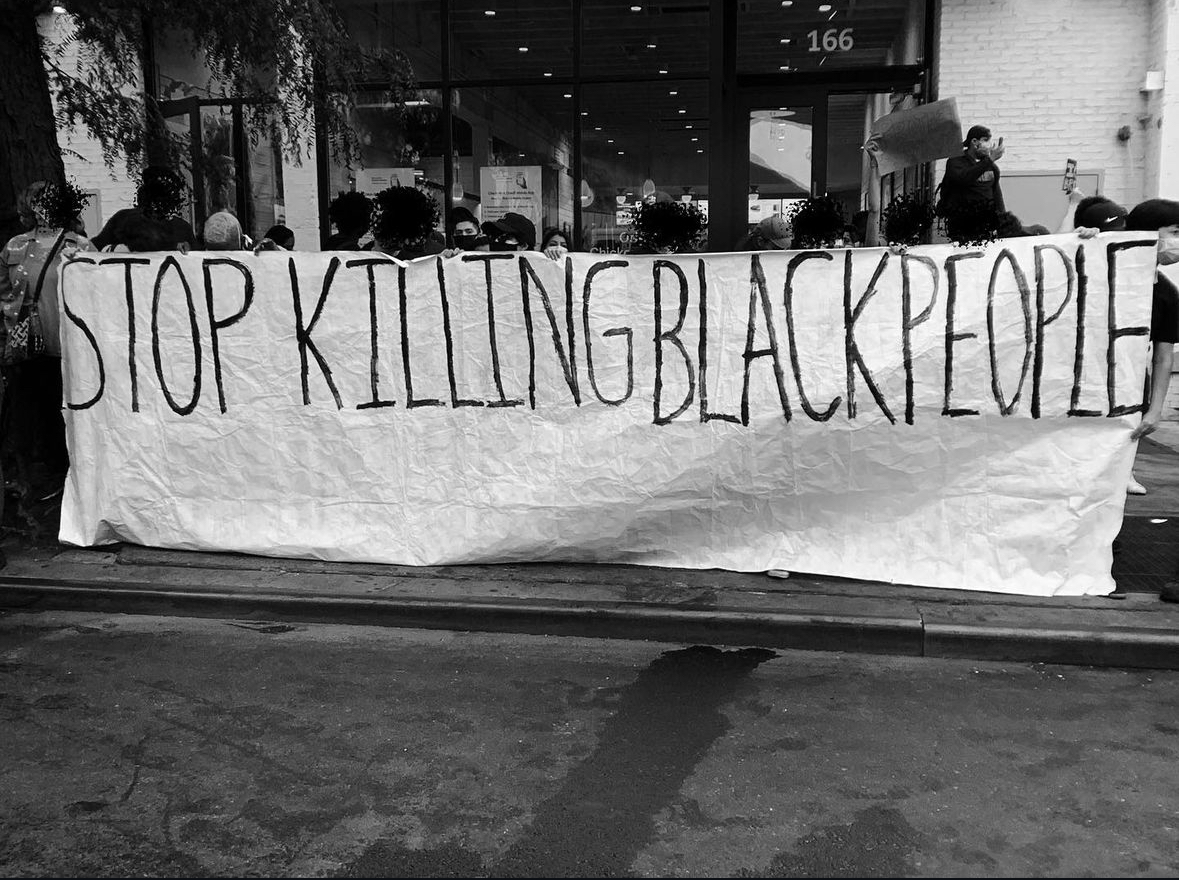 166
STOP KILLING BLACK PEOPLE